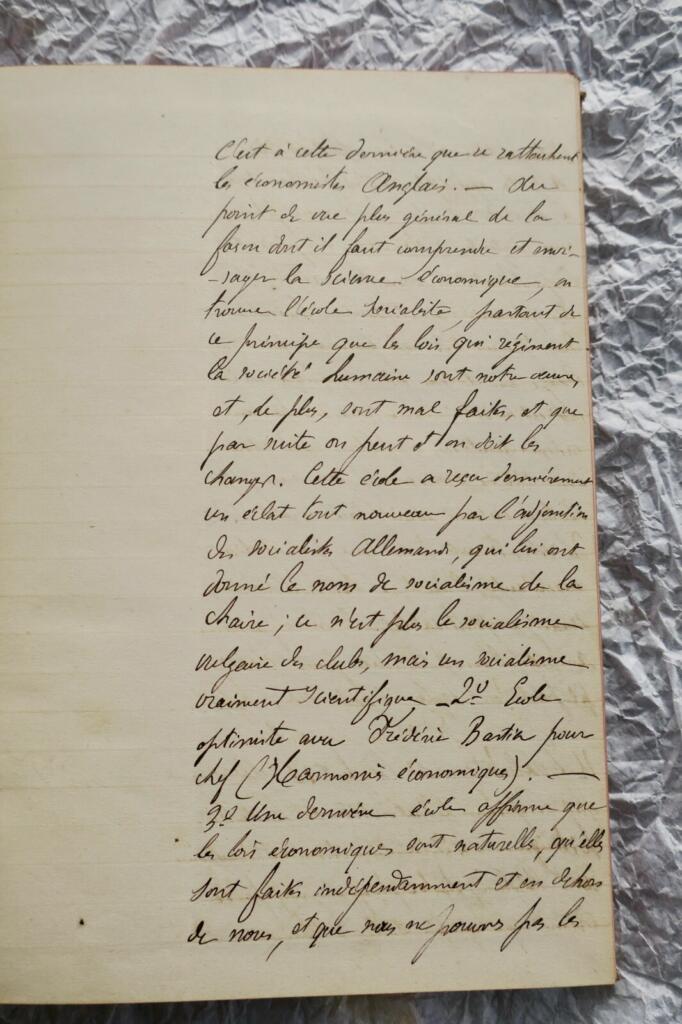 C'est à cette dernière que se rattachent
les économistes Anglais. — Du
point de vue plus général de la
façon dont il faut comprendre et envi-
-sager la science économique, on
trouve l'école socialiste, partant de
ce principe que les lois qui régissent
la société humaine sont notre œuvre,
et, de plus, sont mal faites, et que
par suite on peut et on doit les
changer. Cette école a reçu dernièrement
un éclat tout nouveau par l'adjonction
des socialistes Allemands, qui lui ont
donné le nom de socialisme de la
chaire ; ce n'est plus le socialisme
vulgaire des clubs, mais un socialisme
vraiment scientifique _ 2º Ecole
optimiste avec Frédéric Bastia pour
chef (Harmonies économiques). —
3º Une dernière école affirme que
les lois économiques sont naturelles, qu'elles
sont faites indépendamment et en dehors
de nous, et que nous ne pouvons pas les